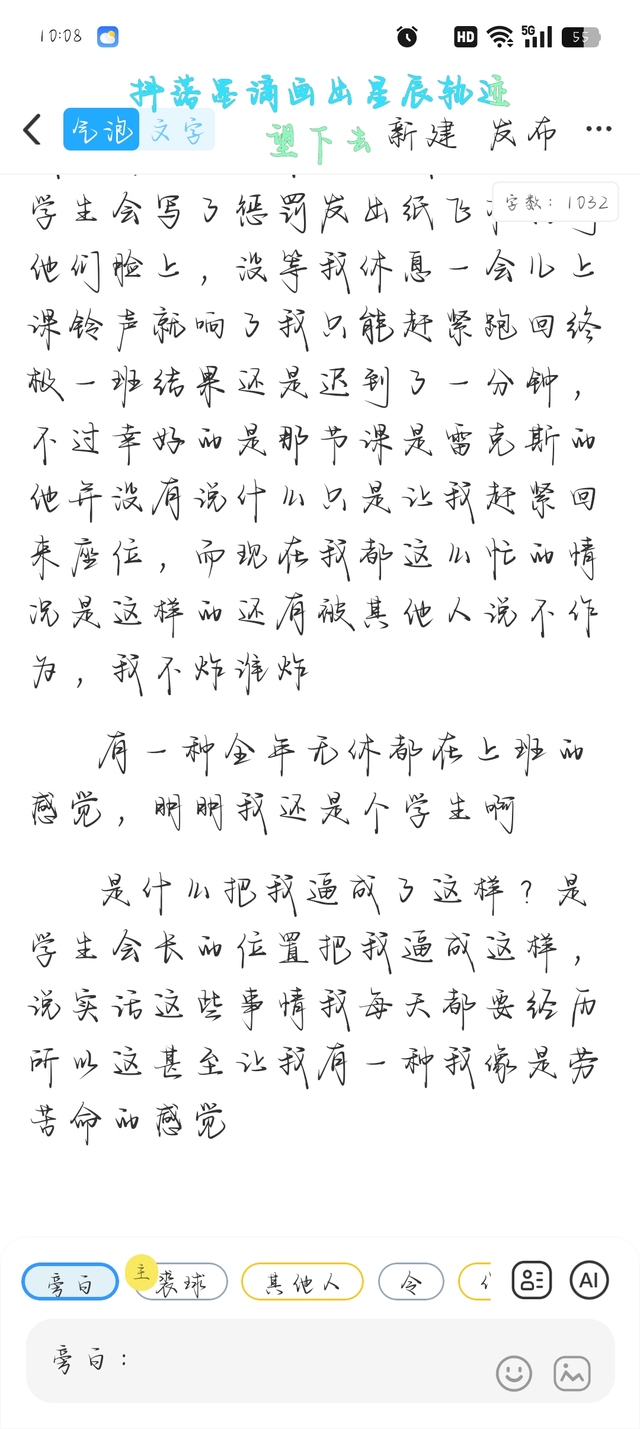 10:08
HD
5G
55
抖落墨滴画出星辰轨迹
气泡 文字
望下去
新建 发布
字数：1032
学生会写了惩罚发出纸飞
他们脸上，没等我休息一会儿上
课铃声就响了我只能赶紧跑回终
极一班结果还是迟到了一分钟，
不过幸好的是那节课是雷克斯的
他并没有说什么只是让我赶紧回
来座位，而现在我都这么忙的情
况是这样的还有被其他人说不作
为，我不炸谁炸
有一种全年无休都在上班的
感觉，明明我还是个学生啊
是什么把我逼成了这样？是
学生会长的位置把我逼成这样，
说实话这些事情我每天都要经历
所以这甚至让我有一种我像是劳
苦命的感觉
旁白 主 裘球 其他人 令
AI
旁白：